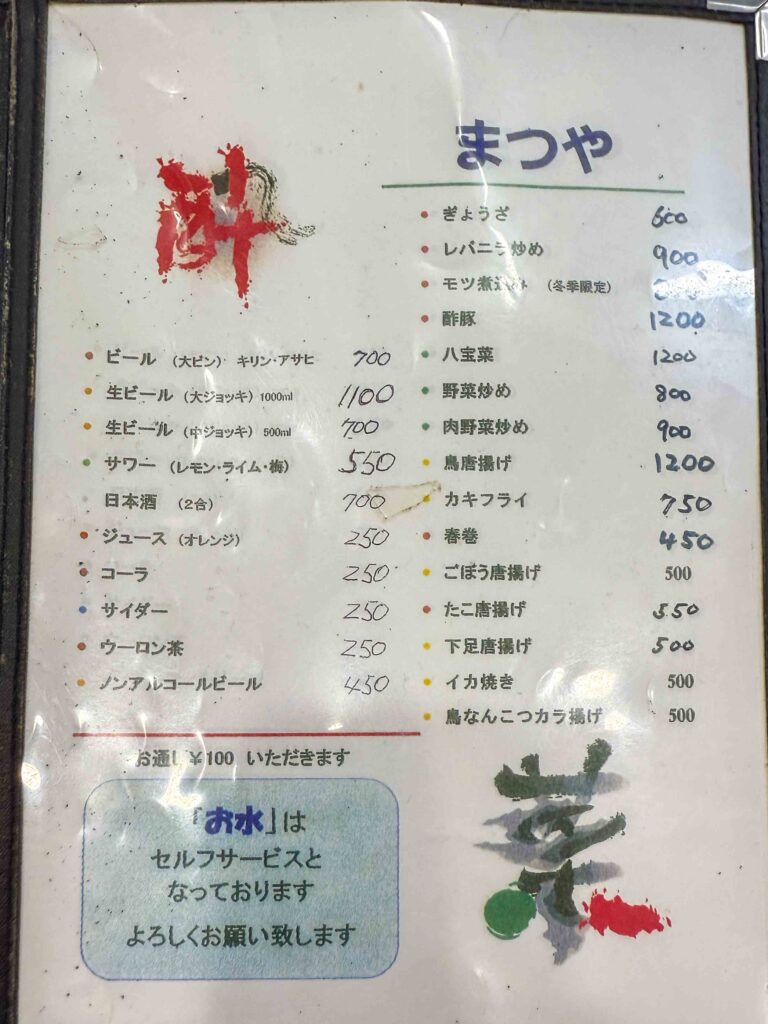 酔
ビール (大ビン) キリン・アサヒ 700
生ビール (大ジョッキ) 1000ml 1100
生ビール (中ジョッキ) 500ml 700
サワー (レモン・ライム・梅) 550
日本酒 (2合) 700
ジュース (オレンジ) 250
コーラ 250
サイダー 250
ウーロン茶 250
ノンアルコールビール 450
お通し¥100 いただきます
「お水」は
セルフサービスと
なっております
よろしくお願い致します
まつや
ぎょうざ 600
レバニラ炒め 900
モツ煮込み (冬季限定)
酢豚 1200
八宝菜 1200
野菜炒め 800
肉野菜炒め 900
鳥唐揚げ 1200
カキフライ 750
春巻 450
ごぼう唐揚げ 500
たこ唐揚げ 550
下足唐揚げ 500
イカ焼き 500
鳥なんこつカラ揚げ 500
菜